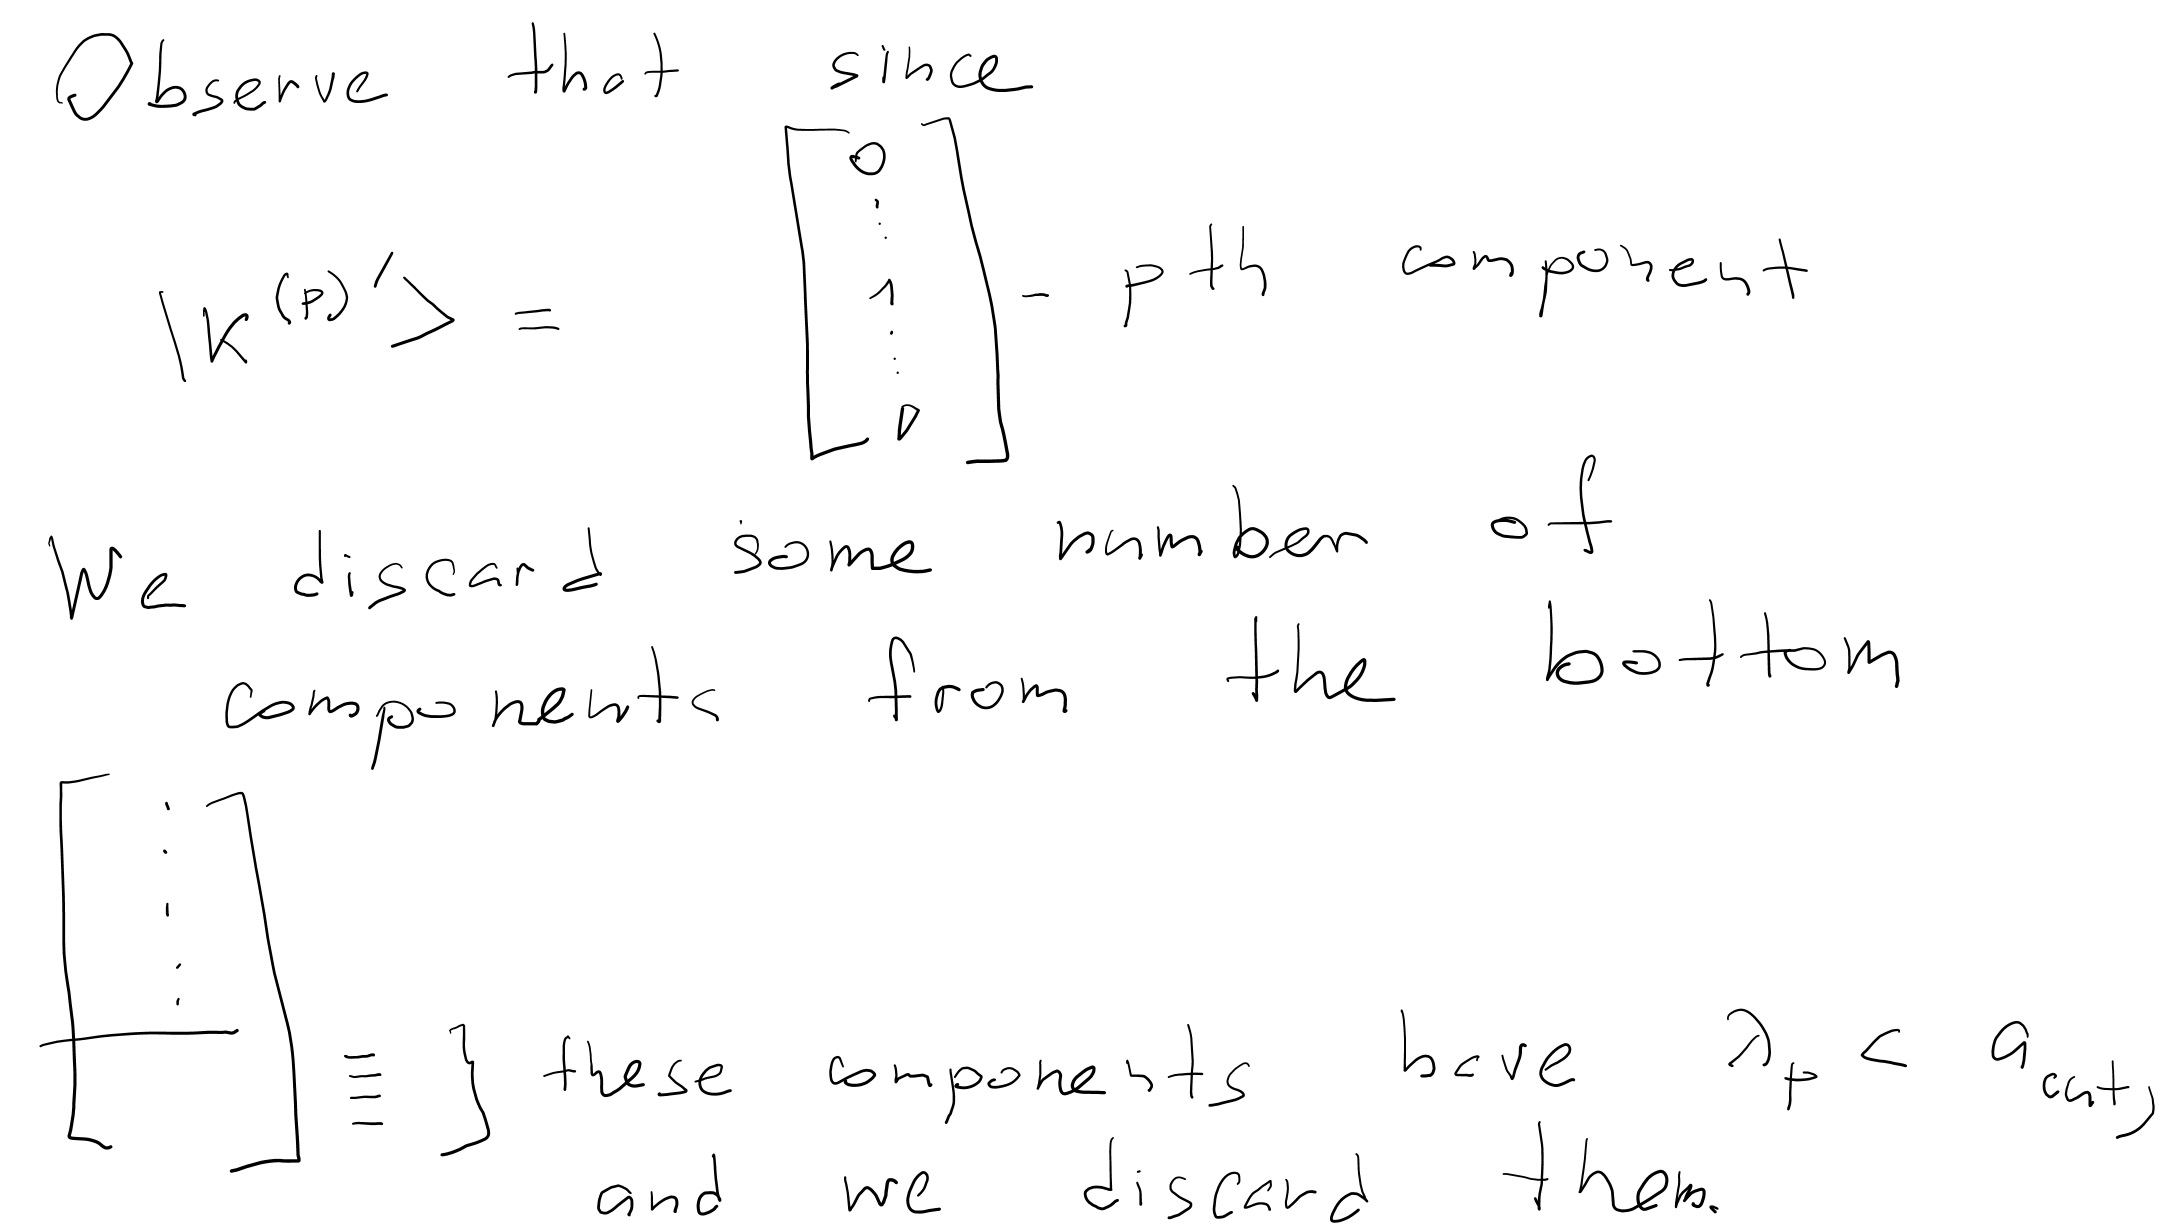 Observe that since
|K^{(p)'}> = [0 ⋮ 1 ⋮ 0] - pth component
We discard some number of
components from the bottom
[⋮] } these components have λ_p < a_cut,
and we discard them.